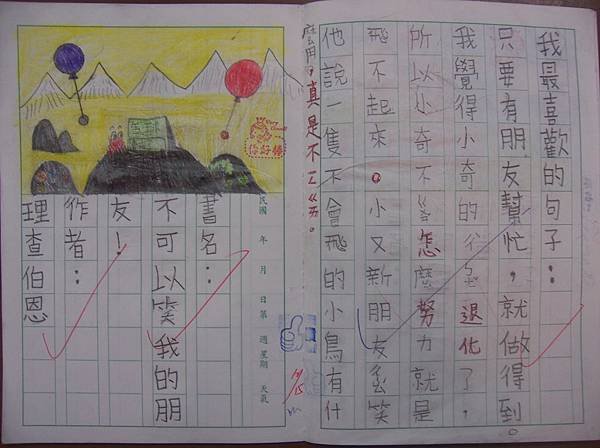 我最喜歡的句子：
只要有朋友幫忙，就做得到。
我覺得小奇的退化了，
所以小奇不怎麼努力就是
飛不起來。小又新朋友笑
他說一隻不會飛的小鳥有什
麼用，真是不
民國 年 月 日 第 週 星期 天氣
10/15
書名：
不可以笑我的朋
友！
作者：
理查伯恩
你好棒